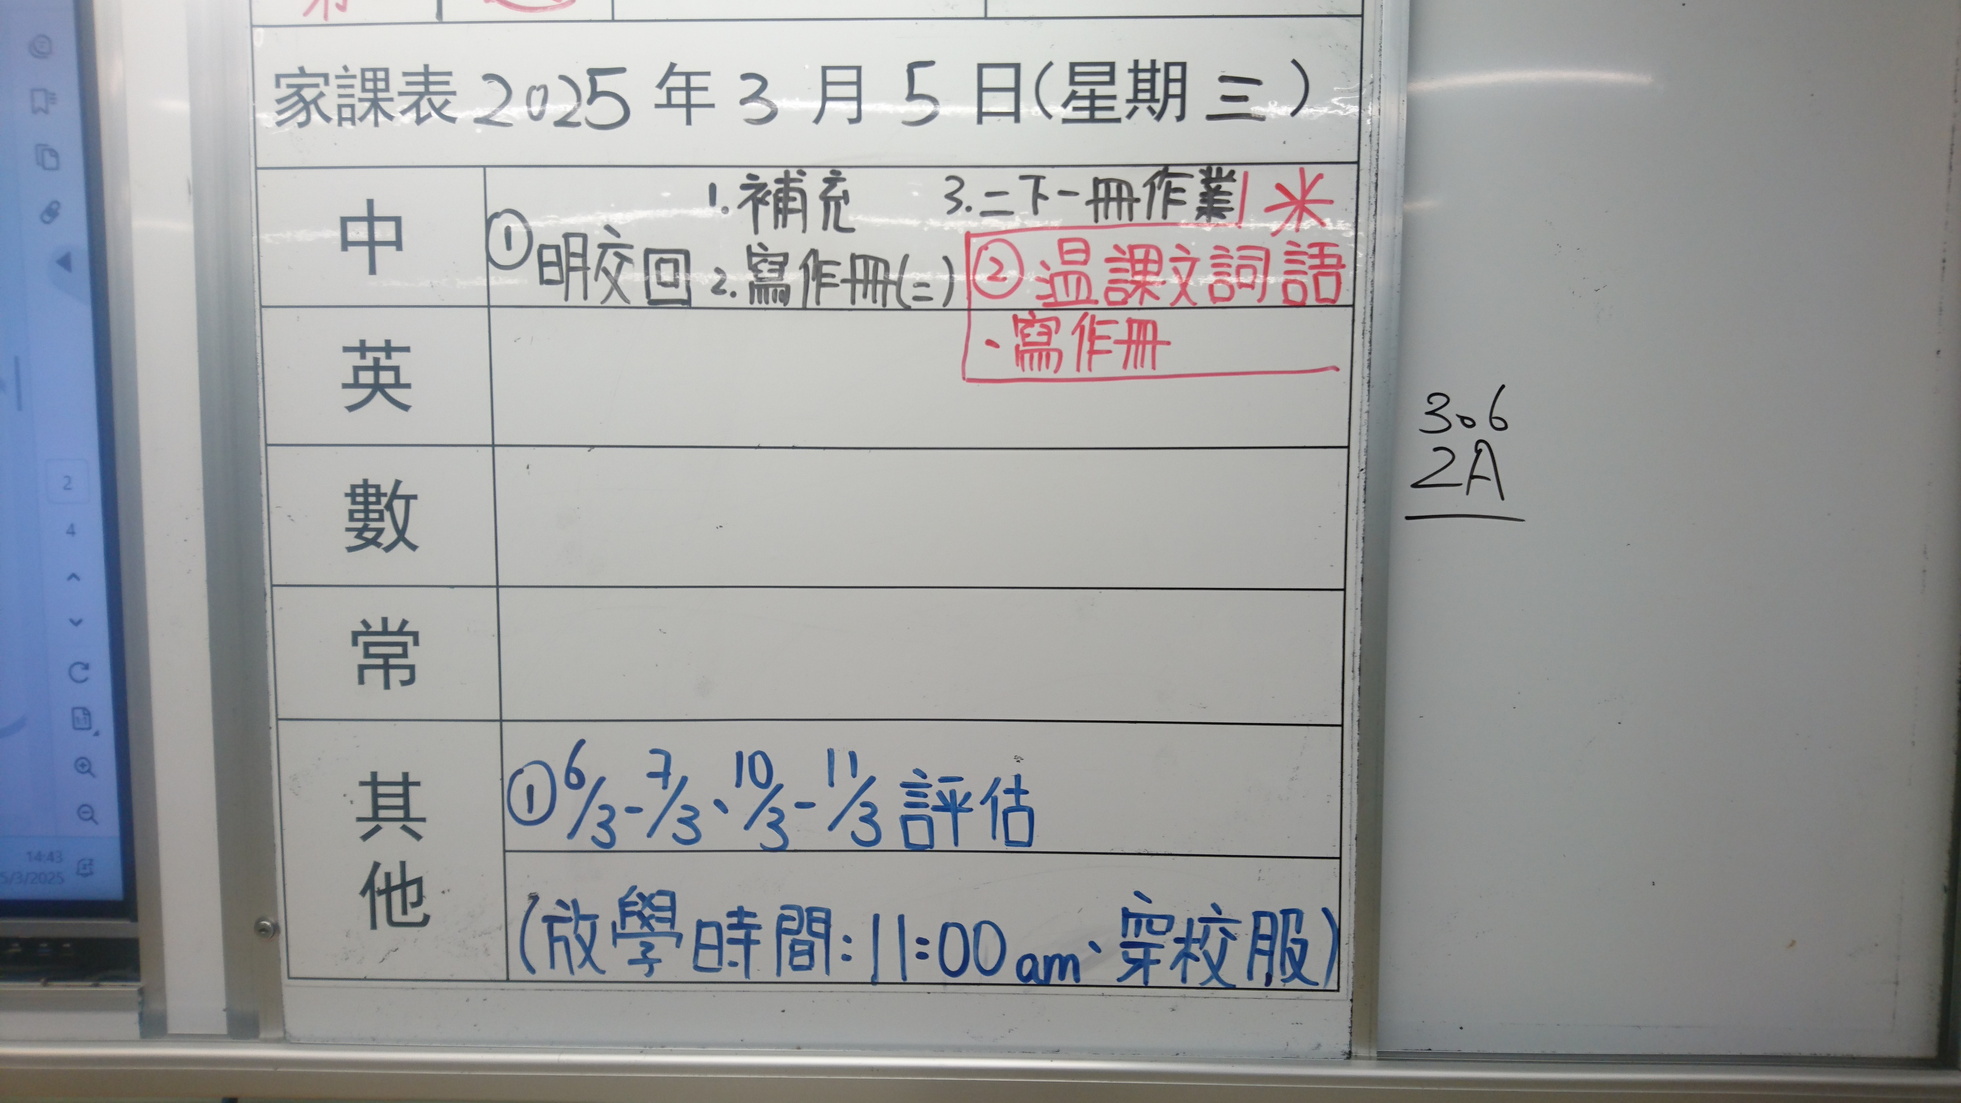 家課表 2025 年 3 月 5 日(星期 三)
中
① 明交回 1. 補充
2. 寫作冊(二)
3. 二下一冊作業
米
② 温課文詞語
、寫作冊
英
數
常
其他
① 6/3-7/3、10/3-11/3 評估
(放學時間:11:00am、穿校服)
306
2A
2
4
14:43
5/3/2025